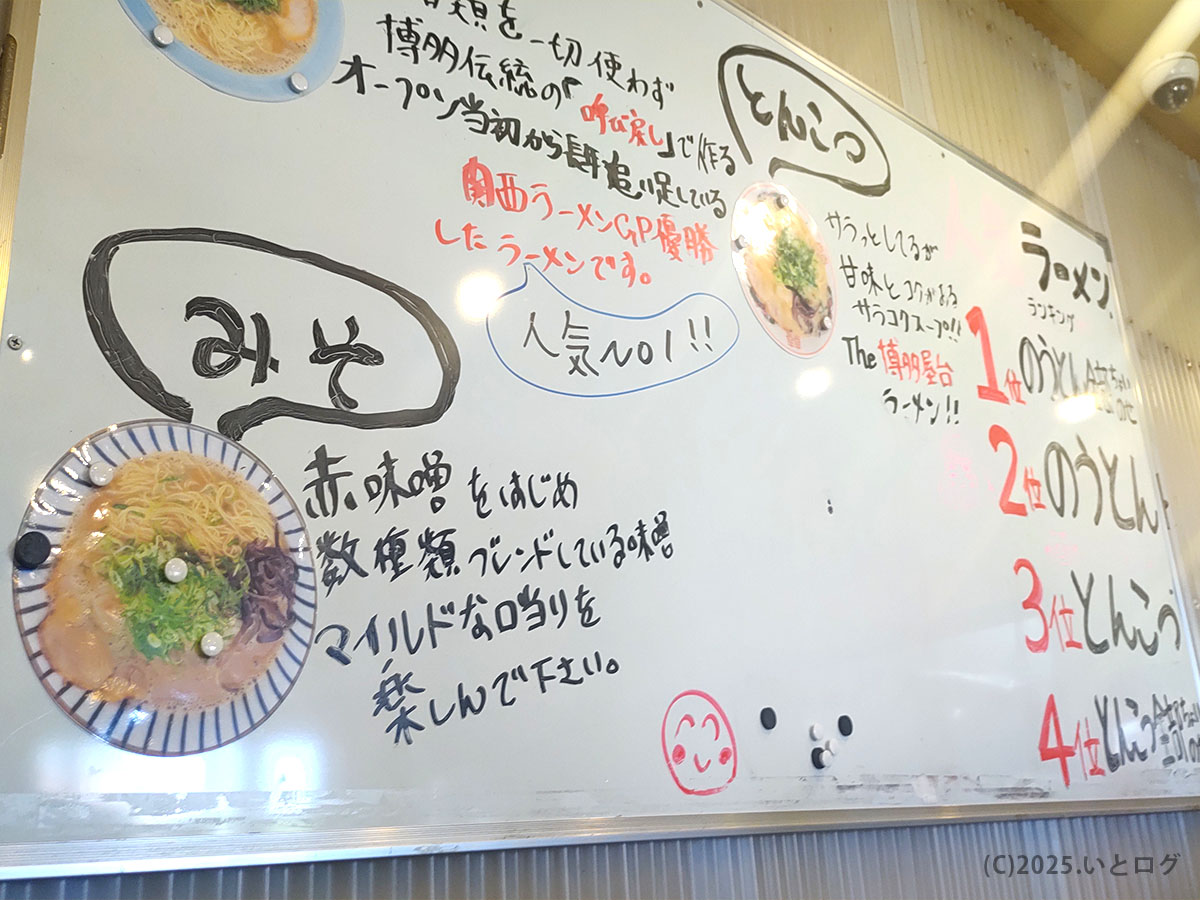 類を一切使わず
博多伝統の「呼び戻し」で作る
オープン当初から長年追い足している
関西ラーメンGP優勝
したラーメンです。
人気NO1!!
とんこつ
サラっとしてるが
甘味とコクがある
サラコクスープ!!
The 博多屋台
ラーメン!!
みそ
赤味噌をはじめ
数種類ブレンドしている味噌
マイルドな口当りを
楽しんで下さい。
ラーメン
ランキング
1位 のうとん全部ちょい
のせ
2位 のうとん
3位 とんこつ
4位 とんこつ全部ちょい
(C)2025.いとログ